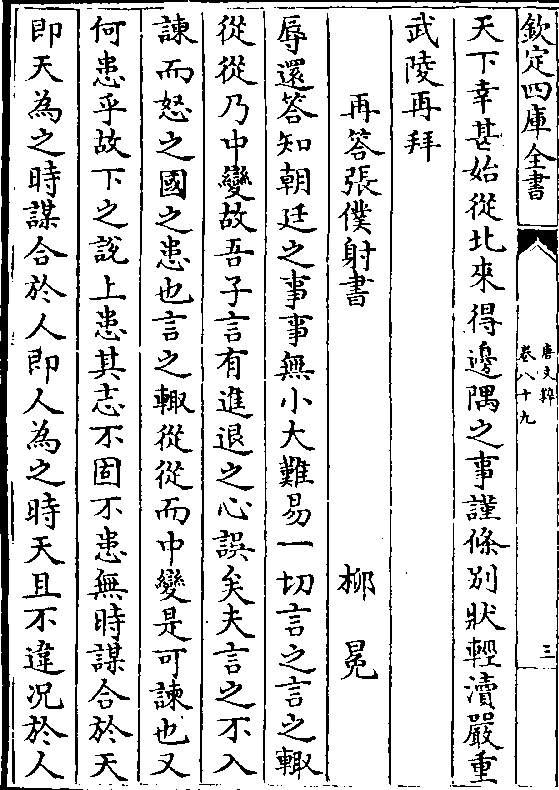 欽定四庫全書
唐文粹
卷八十九
三
天下幸甚始從北來得邊隅之事謹條別狀輕瀆嚴重
武陵再拜
再答張僕射書
柳冕
辱還答知朝廷之事事無小大難易一切言之言之輙
從從乃中變故吾子言有進退之心誤矣夫言之不入
諫而怒之國之患也言之輙從從而中變是可諫也又
何患乎故下之說上患其志不固不患無時謀合於天
即天為之時謀合於人即人為之時天且不違况於人